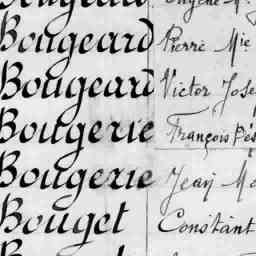 Bougeard Pierre Mie
Bougeard Victor Jose
Bougerie François Dés
Bougerie Jean Ma
Bouget Constant